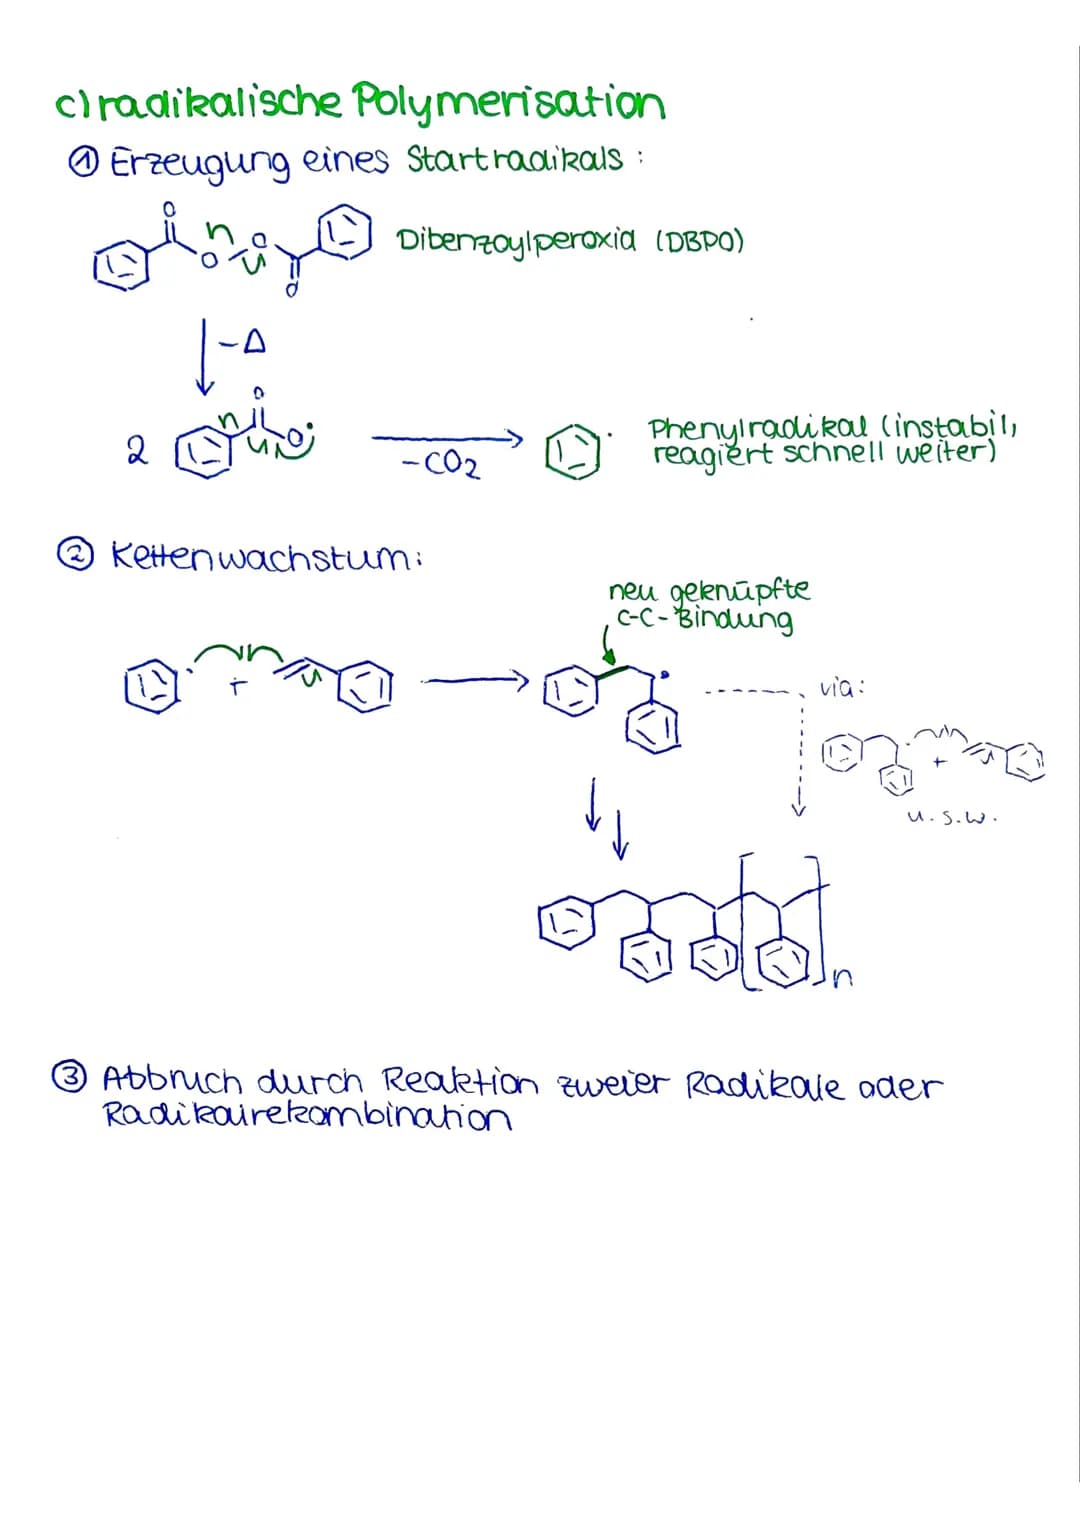 c) radikalische Polymerisation
① Erzeugung eines Startradikals :
O
O
O
O
Dibenzoylperoxid (DBPO)
-Δ
O
2
O·
-CO2
Phenylradikal (instabil,
reagiert schnell weiter)
② Kettenwachstum:
neu geknüpfte
C-C-Bindung
+
via:
+
u. s. w.
n
③ Abbruch durch Reaktion zweier Radikale oder
Radikalrekombination